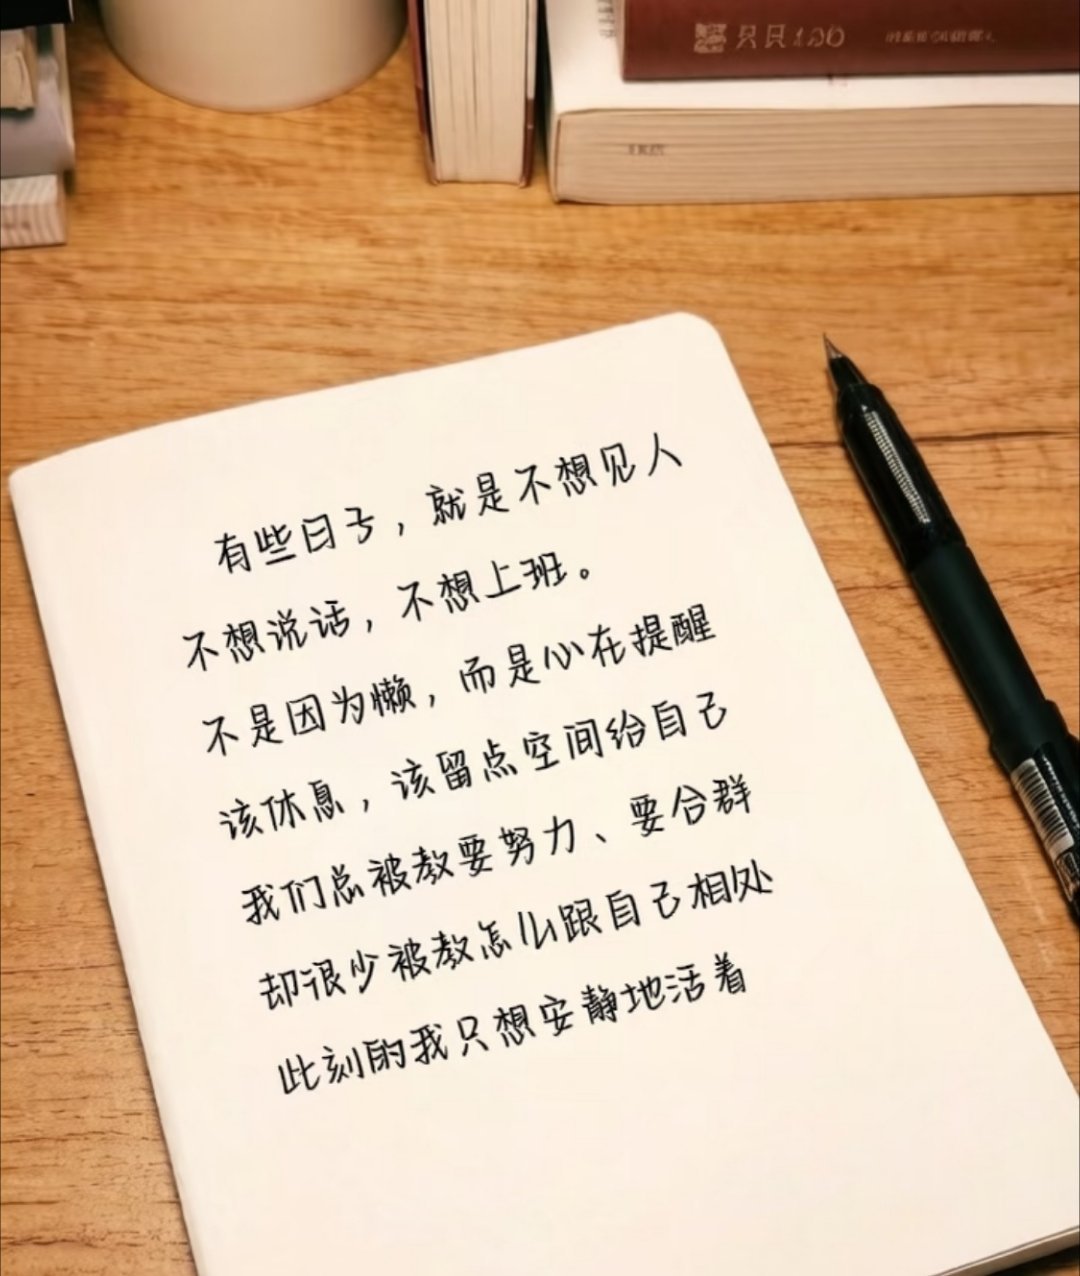 有些日子，就是不想见人
不想说话，不想上班。
不是因为懒，而是心在提醒
该休息，该留点空间给自己
我们总被教要努力、要合群
却很少被教怎么跟自己相处
此刻的我只想安静地活着